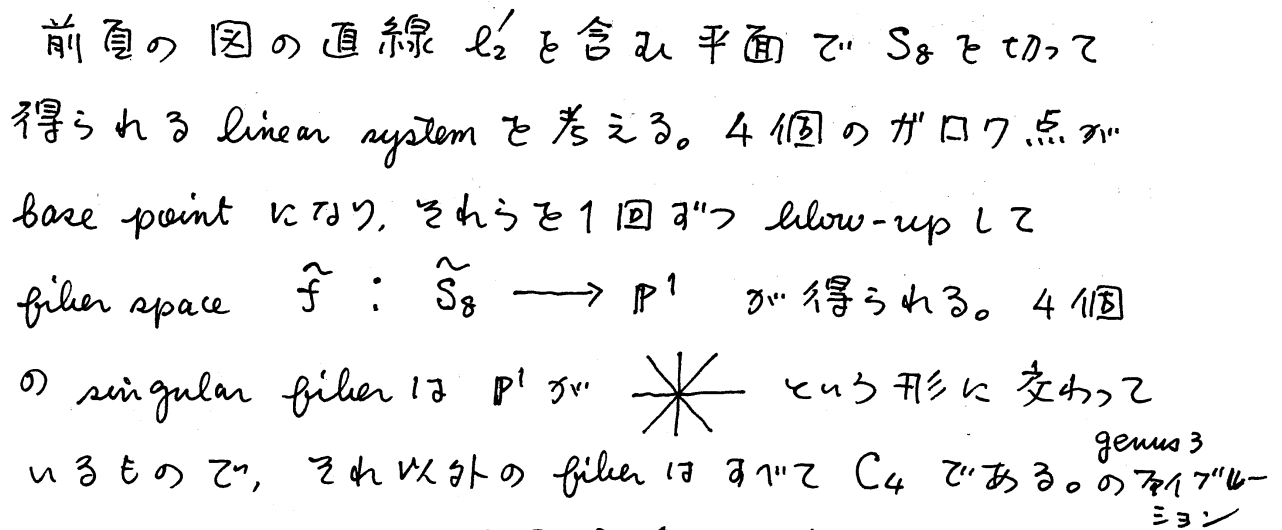 前頁の図の直線 l₂′ を含む平面で S₈ を切って
得られる linear system を考える。4個のガロワ点が
base point になり, それらを1回ずつ blow-up して
fiber space f̃ : S̃₈ ⟶ ℙ¹ が得られる。4個
の singular fiber は ℙ¹ が という形に交わって
いるもので, それ以外の fiber はすべて C₄ である。の
genus 3
ファイブレー
ション